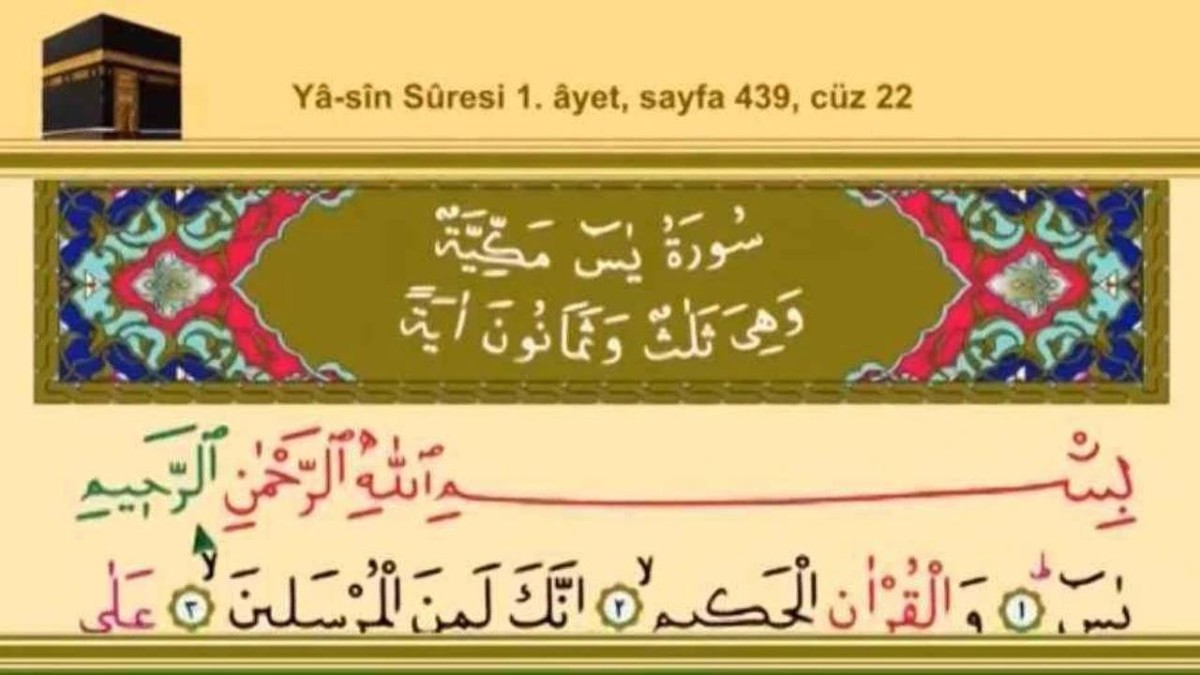 Yâ-sîn Sûresi 1. âyet, sayfa 439, cüz 22
سُورَةُ يٰسٓ مَكِّيَّةٌ
وَهِيَ ثَلٰثٌ وَثَمَانُونَ اٰيَةً
بِسْمِ ٱللّٰهِ ٱلرَّحْمٰنِ ٱلرَّحِيمِ
يٰسٓ ۜ ١ وَالْقُرْاٰنِ الْحَكِيمِ ۙ ٢ اِنَّكَ لَمِنَ الْمُرْسَلِينَ ۙ ٣ عَلٰى